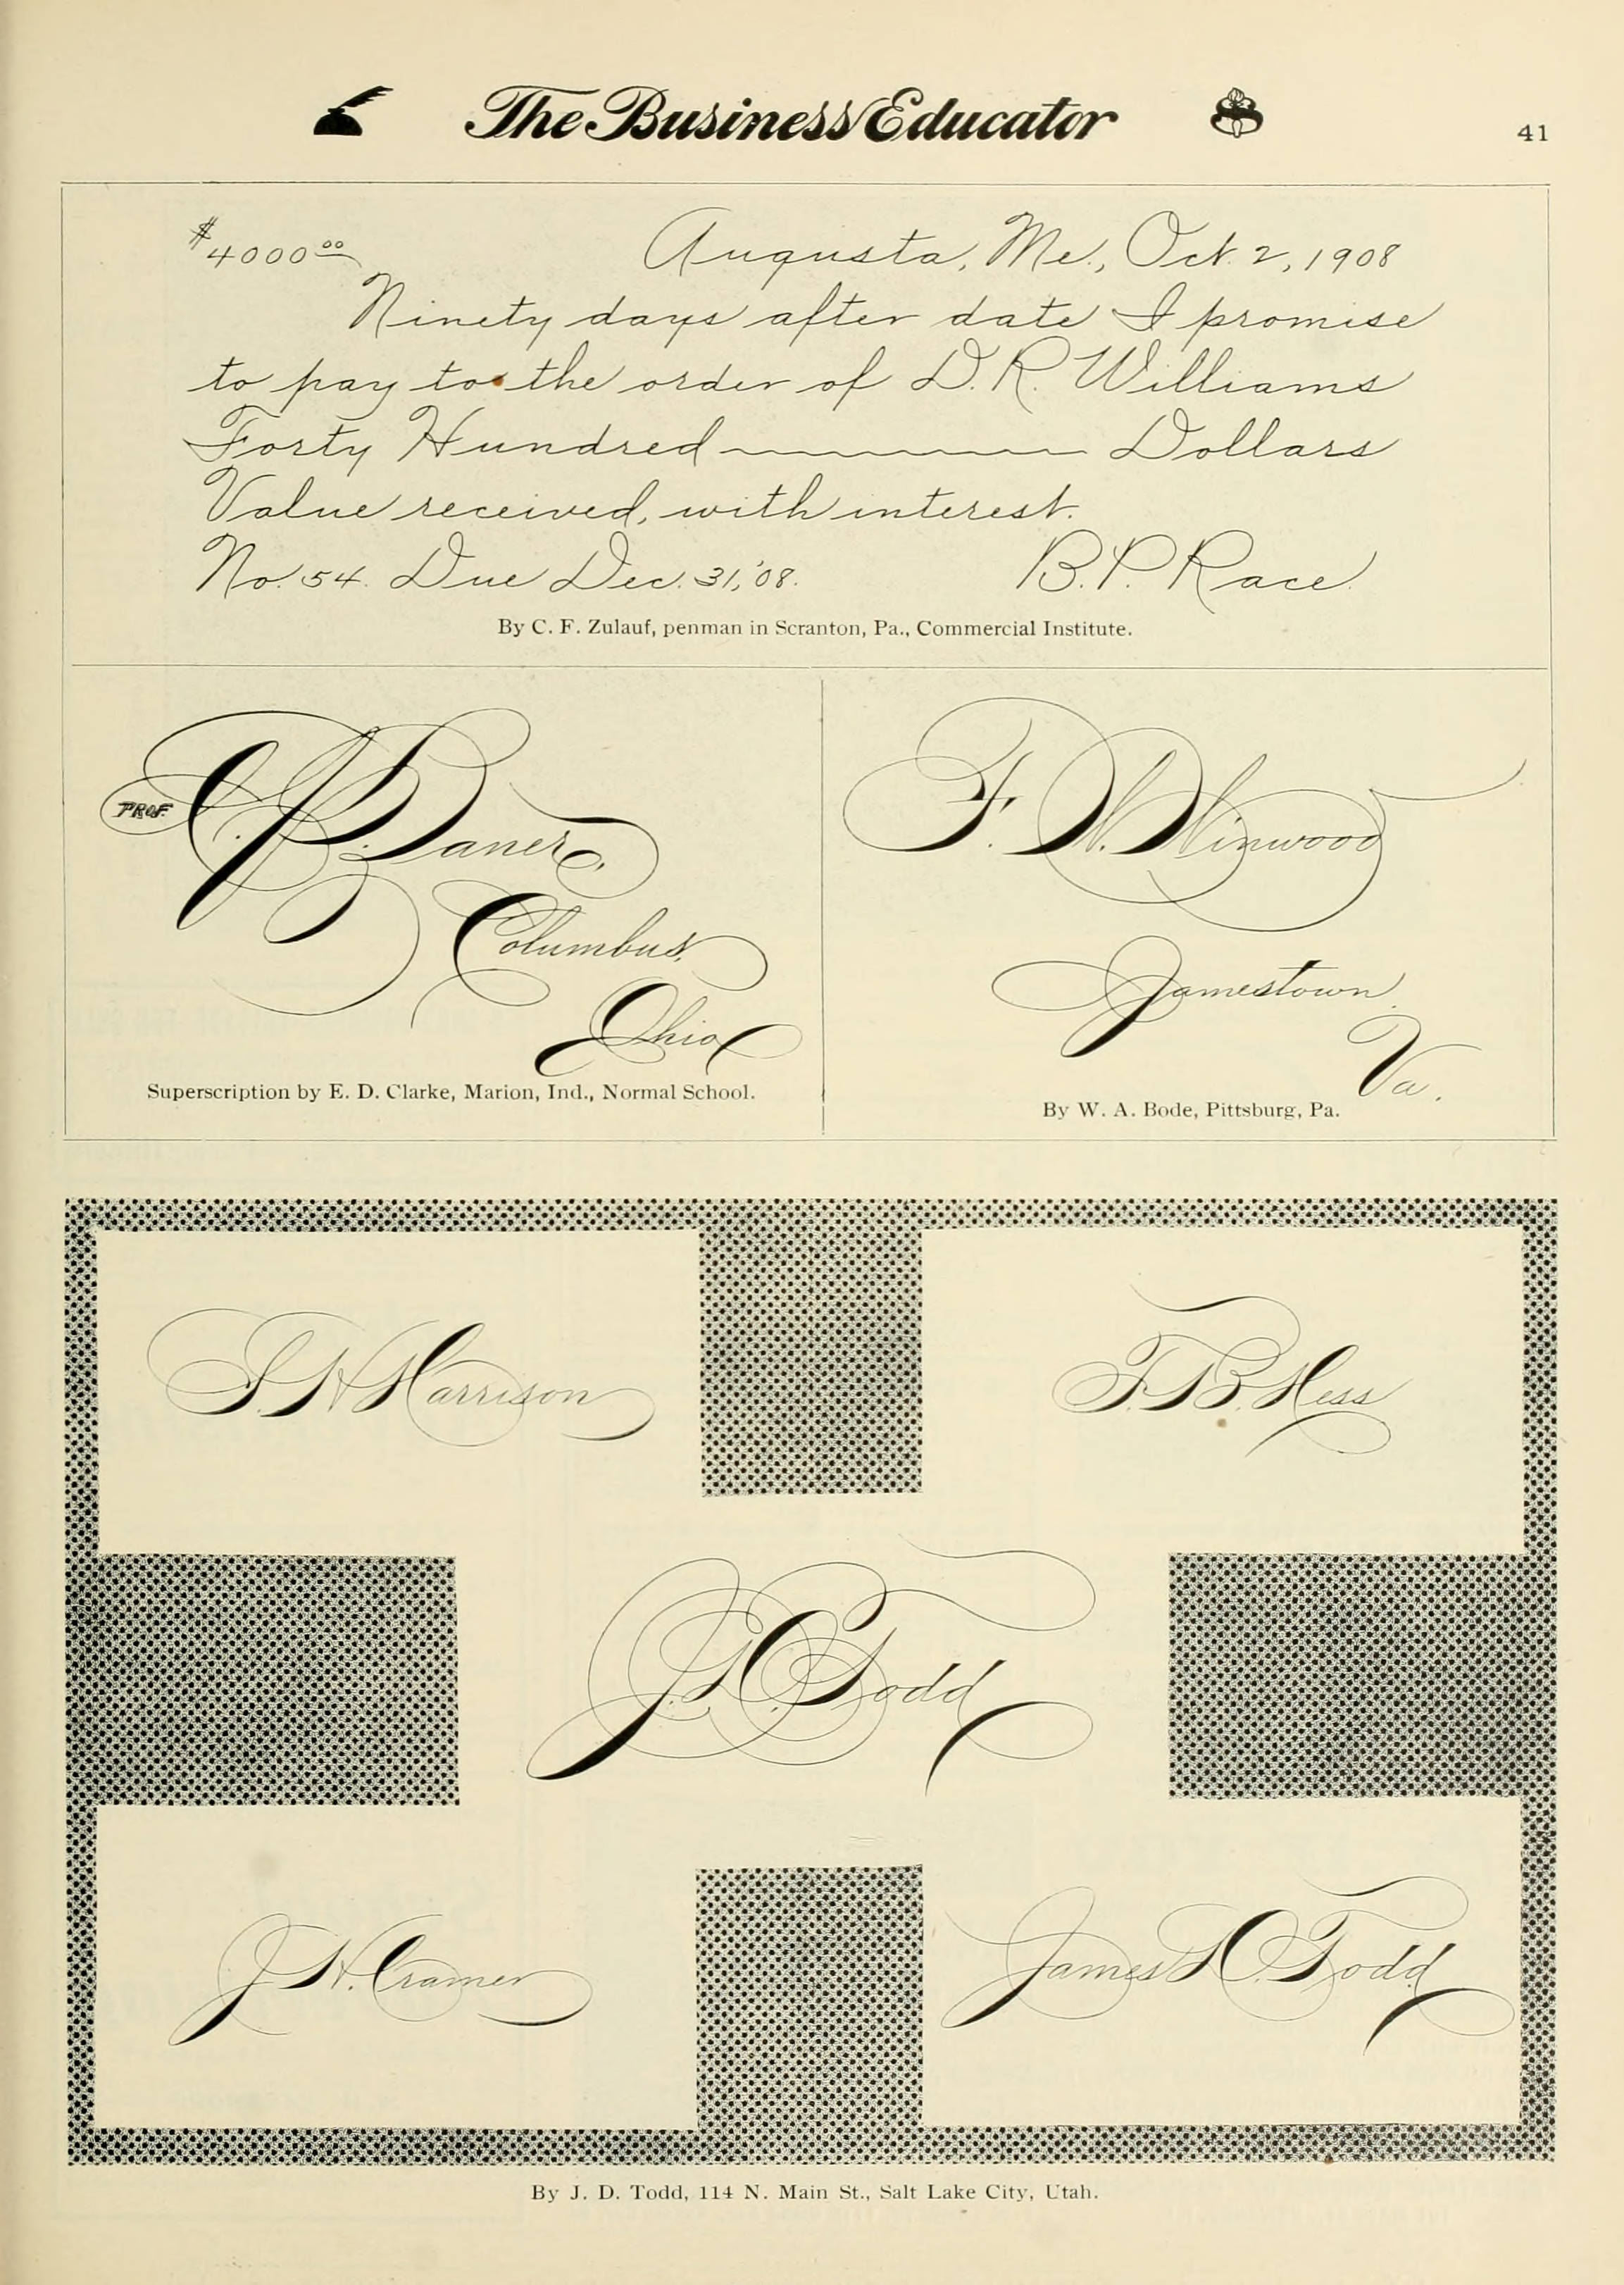 The Business Educator
41
$4000 00 Augusta, Me., Oct. 2, 1908
Ninety days after date I promise
to pay to the order of D. R. Williams
Forty Hundred Dollars
Value received, with interest.
No. 54. Due Dec. 31, '08. B. P. Race.
By C. F. Zulauf, penman in Scranton, Pa., Commercial Institute.
PROF.
Columbus,
Ohio
Superscription by E. D. Clarke, Marion, Ind., Normal School.
F. W. Winwood
Jamestown,
Va.
By W. A. Bode, Pittsburg, Pa.
S. H. Harrison
F. B. Hess
Todd
J. H. Cramer
James Todd
By J. D. Todd, 114 N. Main St., Salt Lake City, Utah.